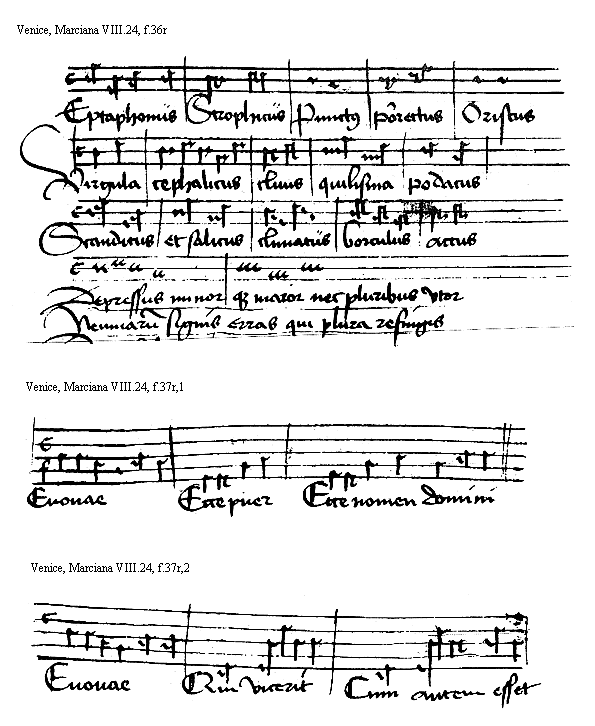 Venice, Marciana VIII.24, f.36r
Eptaphonus Strophicus Punctꝰ pōrectus Oriscus
Virgula cephalicus clinis quilisma podatus
Scandicus et salicus climacus torculus actus
Depressus minor & maior nec pluribus vtor
Neumarū signis erras qui plura refingis
Venice, Marciana VIII.24, f.37r,1
Euouae Ecce puer Ecce nomen domini
Venice, Marciana VIII.24, f.37r,2
Euouae Qui vicerit Cum autem esset